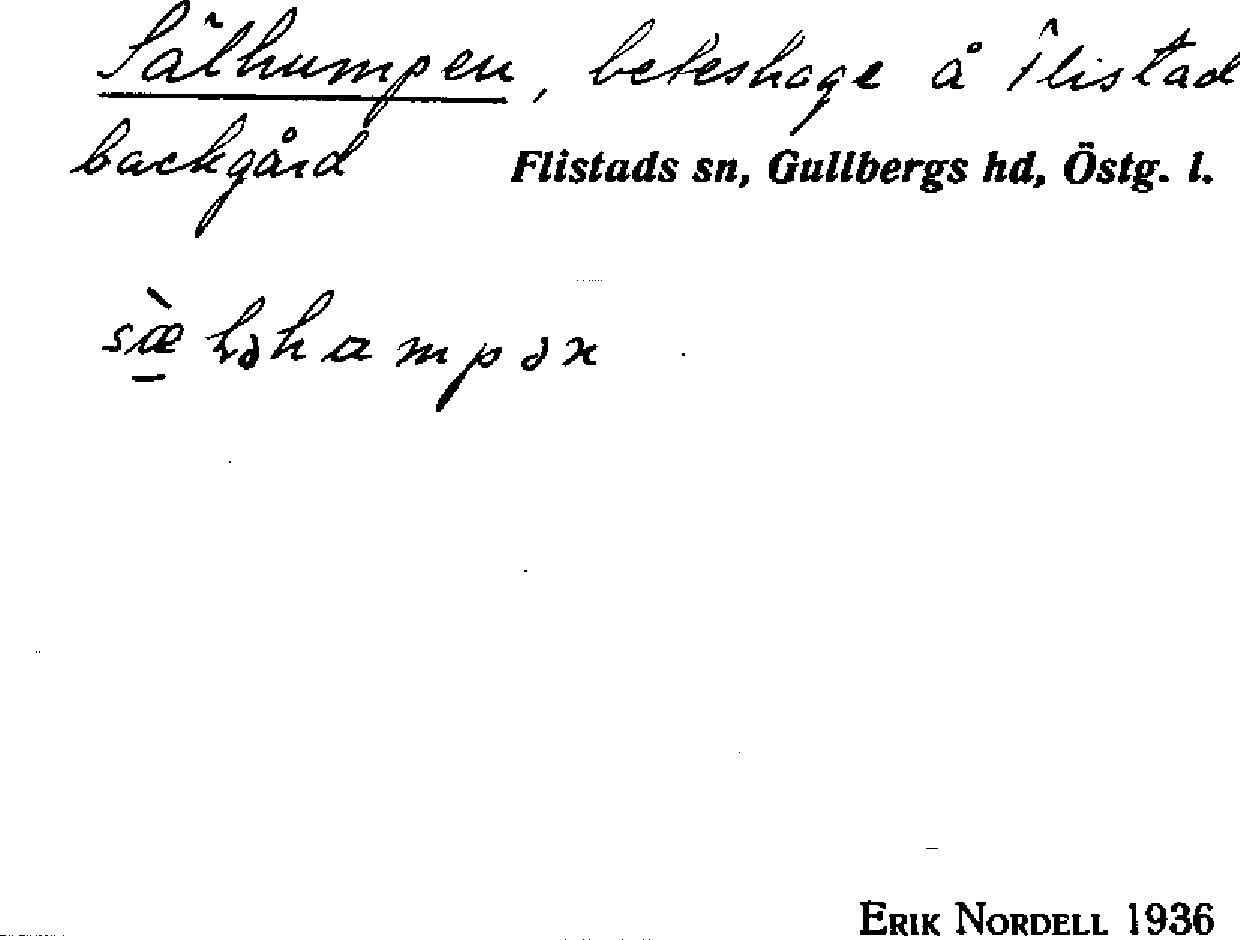 Sälhumpen, beteshage å Flistad
backgård
Flistads sn, Gullbergs hd, Östg. l.
ERIK NORDELL 1936